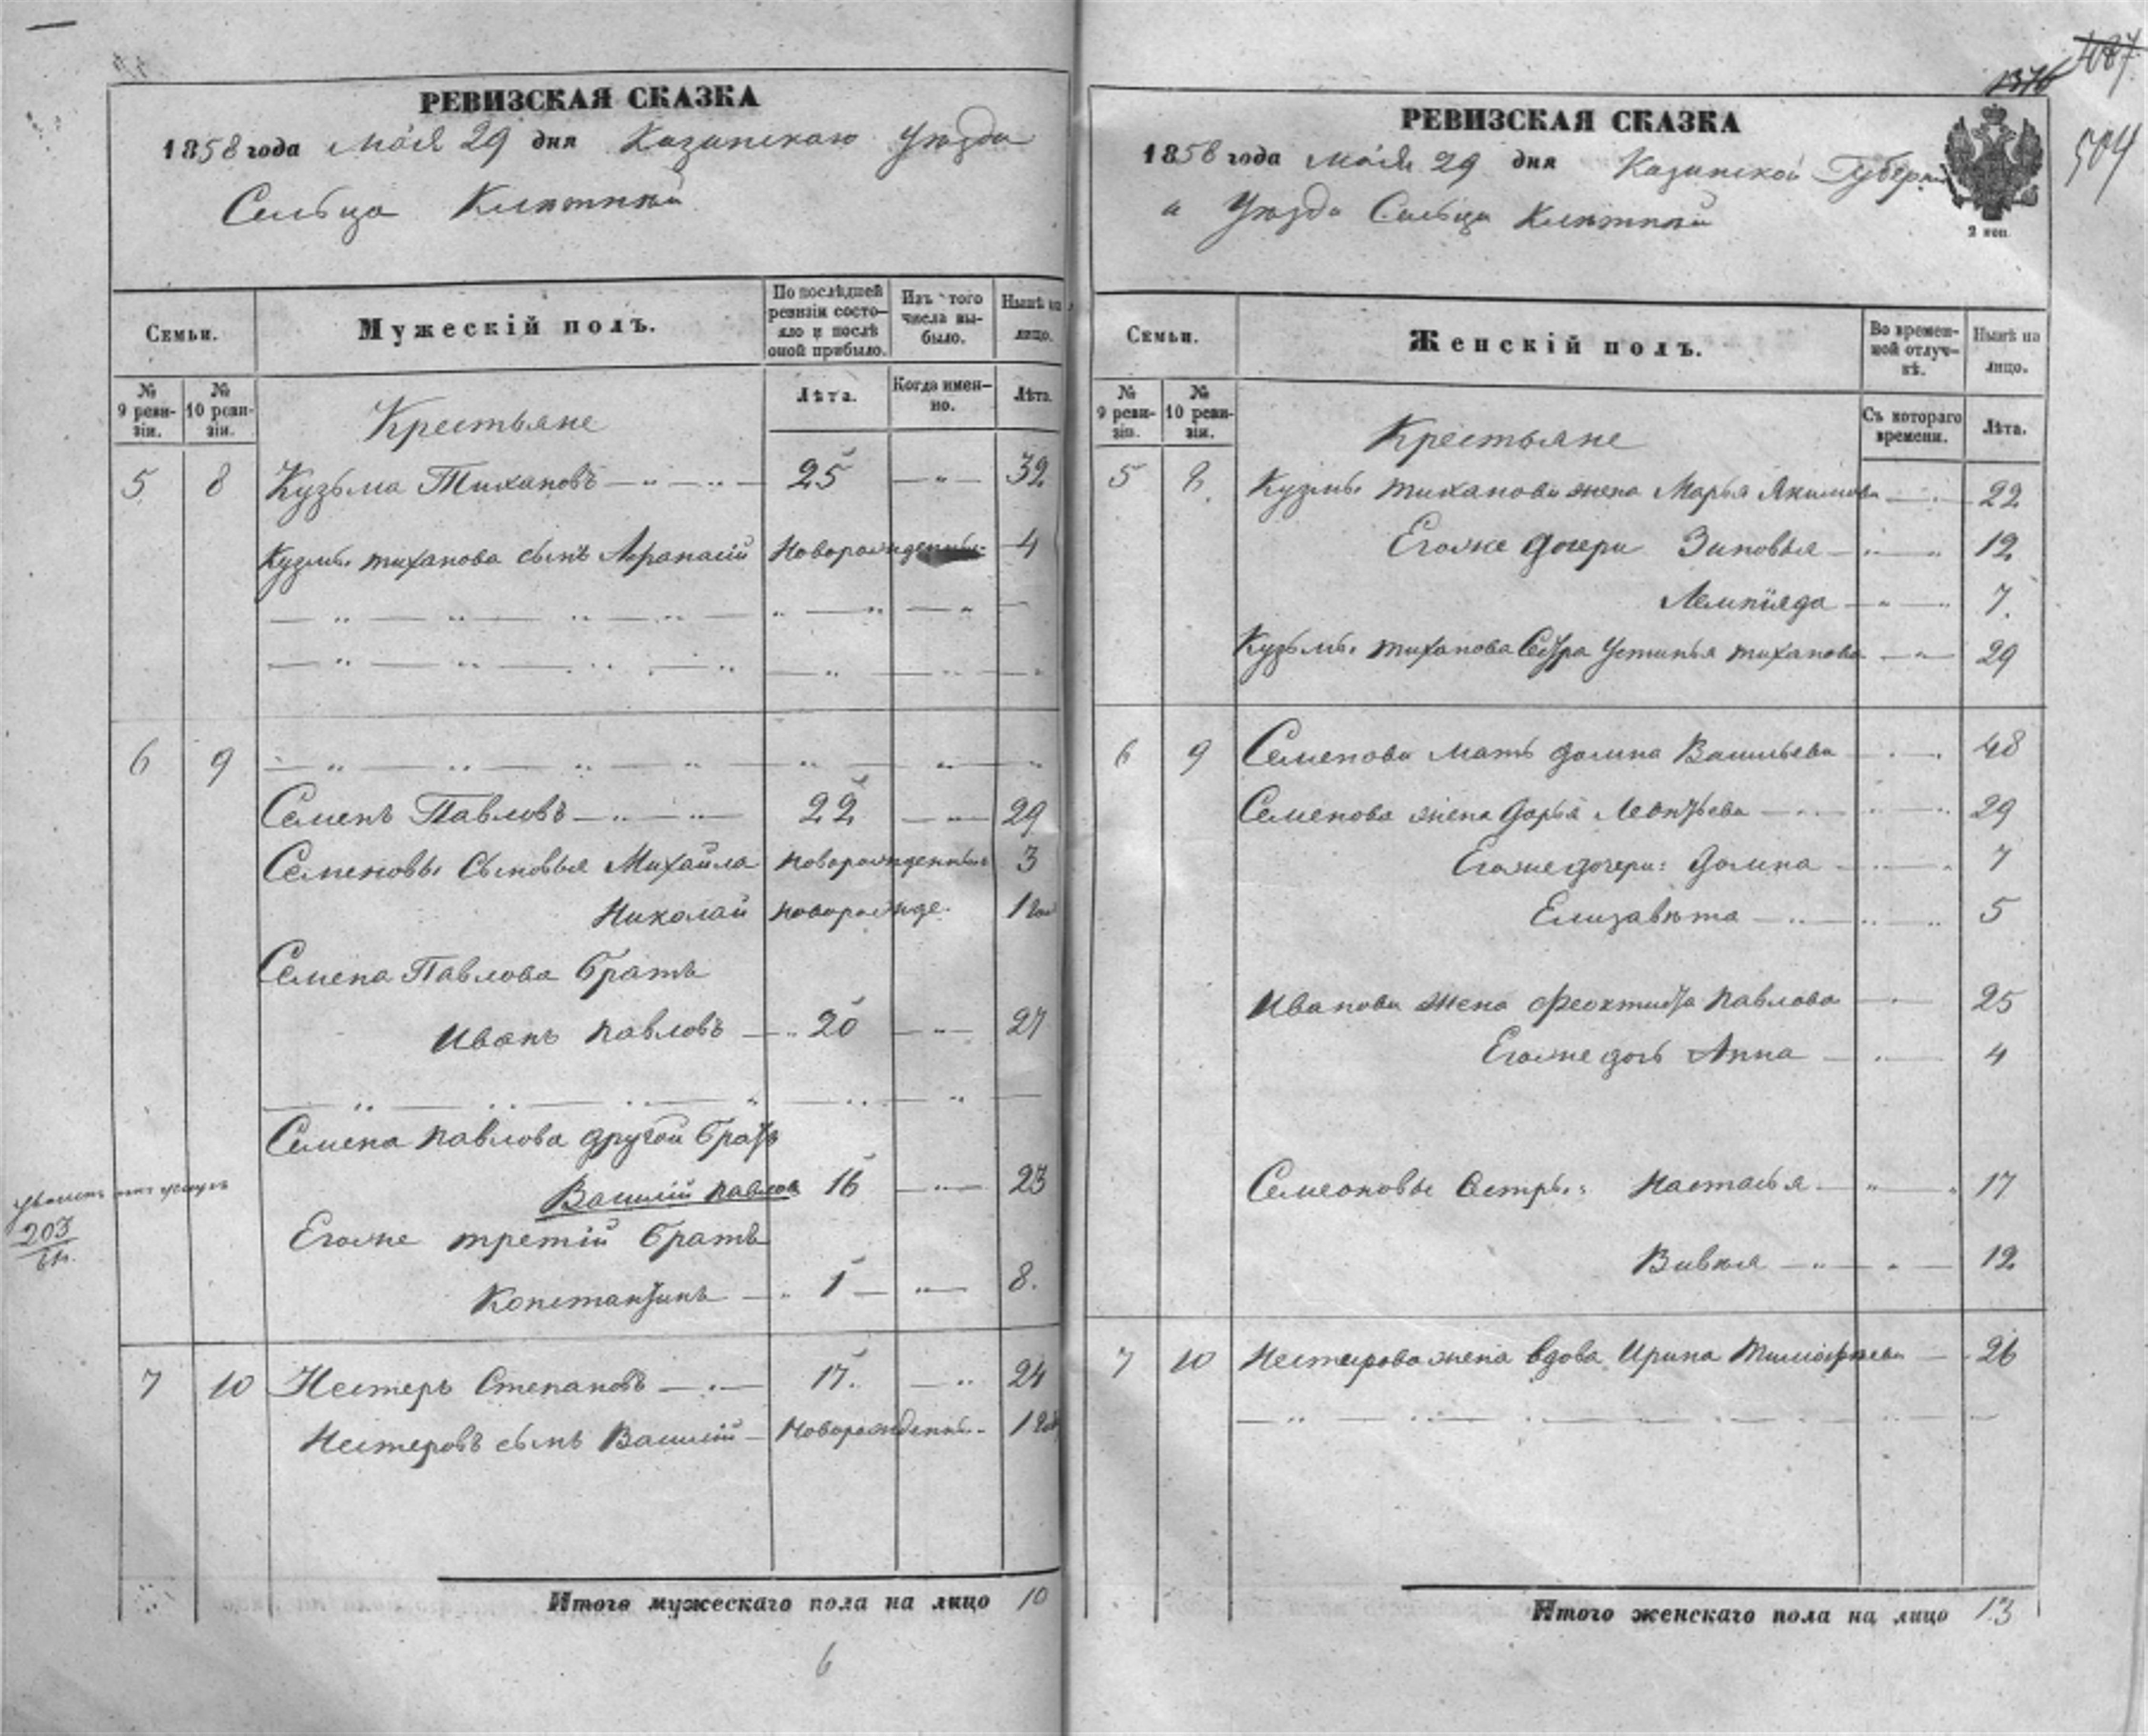 РЕВИЗСКАЯ СКАЗКА
1858 года Мая 29 дня Казанскаго Уезда
Сельца Клетней
Семьи.
Мужескій полъ.
По послѣдней ревизіи состояло и послѣ оной прибыло.
Изъ того числа выбыло.
Нынѣ на лицо.
№ 9 ревизіи.
№ 10 ревизіи.
Лѣта.
Когда именно.
Лѣта.
Крестьяне
5 8 Кузьма Тихановъ 25 32
Кузмы тиханова сынъ Афанасій Новорожденный 4
6 9
Семенъ Павловъ 22 29
Семеновы Сыновья Михайла новорожденные 3
Николай новорожде. 1
Семена Павлова братъ
Иванъ павловъ 20 27
Семена павлова другой братъ
Василій павлов 16 23
Егоже третій братъ
Константинъ 1 8.
7 10 Нестеръ Степановъ 17. 24
Нестеровъ сынъ Василій Новорожденны 1
203
Итого мужескаго пола на лицо 10
6
1087
1376
504
РЕВИЗСКАЯ СКАЗКА
1858 года мая 29 дня Казанской Губерніи
и Уезда Сельца Клетней
2 коп.
Семьи.
Женскій полъ.
Во временной отлучкѣ.
Нынѣ на лицо.
№ 9 ревизіи.
№ 10 ревизіи.
Съ котораго времени.
Лѣта.
Крестьяне
5 8. Кузмы тиханова жена Марья Якимова 22
Егоже дочери Зиновья 12
Лемпіяда 7.
Кузьмы тиханова Сестра Устинья тиханова 29
6 9 Семенова мать домна Васильева 48
Семенова жена Дарья Леонтьева 29
Егоже дочери: Домна 7
Елизавѣта 5
Иванова жена Феоктиста павлова 25
Егоже дочь Анна 4
Семеоновы Сестры: Настасья 17
Вивѣя 12
7 10 Нестерова жена вдова Ирина Тимофѣева 26
Итого женскаго пола на лицо 13